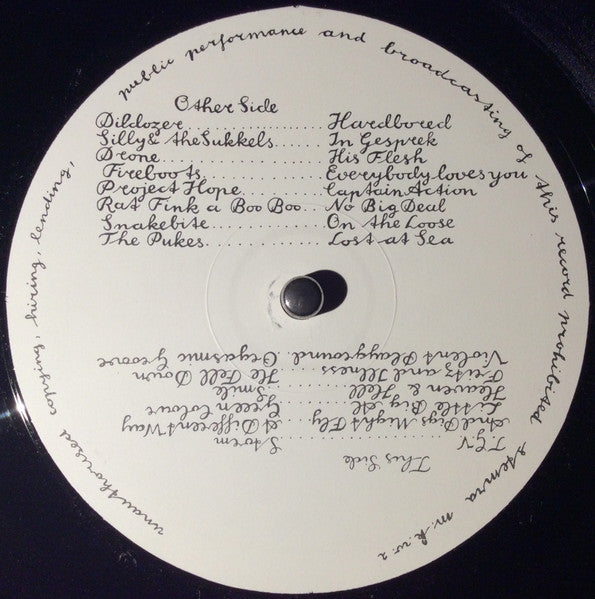 unauthorised copying, hiring, lending, public performance and broadcasting of this record prohibited stemra m.k.w.2
Other Side
Dildozer..............Hardbored
Silly & the Sukkels......In Gesprek
Drone.................His Flesh
Fireboots.............Everybody loves you
Project Hope..........Captain Action
Rat Fink a Boo Boo..No Big Deal
Snakebite.............On the Loose
The Pukes.............Lost at Sea
This Side
T.G.V.................Storm
And Pigs Might Fly....A Different Way
Little Big Al.........Green Colour
Heaven & Hell.........Smile
Fritz and Illness.....He Fell Down
Violent Playground.Orgasmic Groove